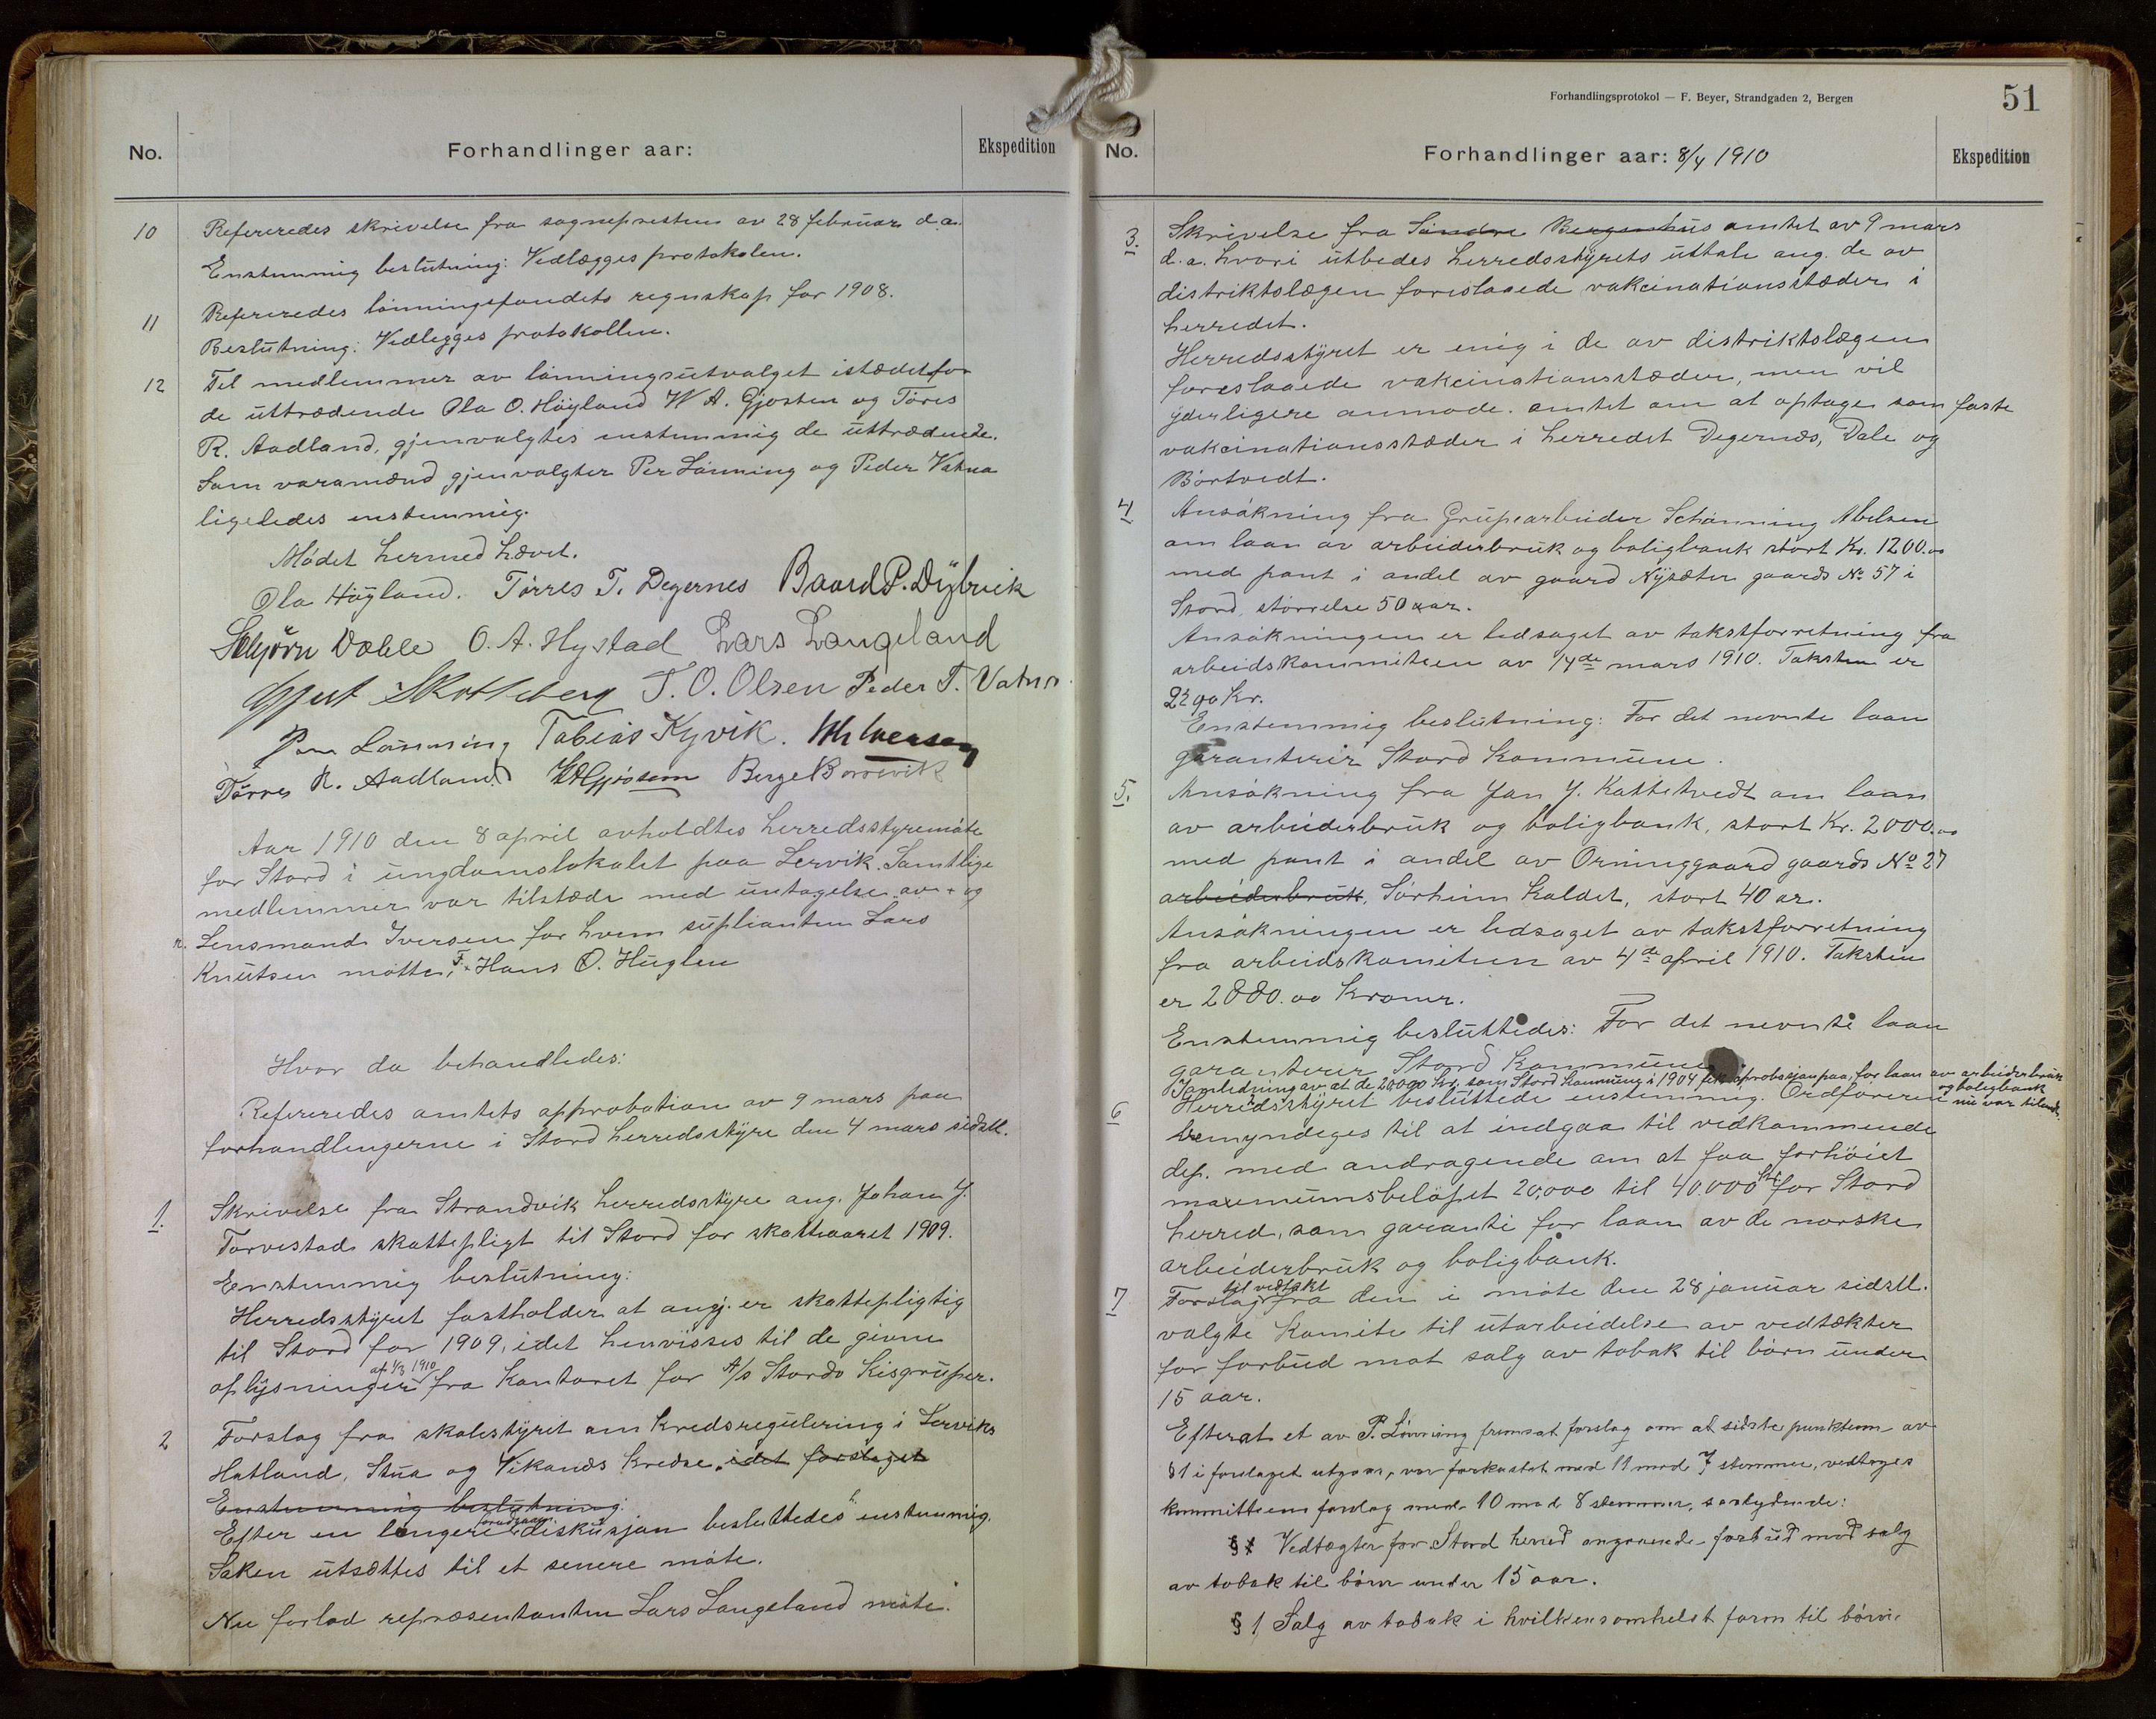 No.
Forhandlinger aar:
Ekspedition
10 Refereredes skrivelse fra sognepresten av 28 februar d.a.
Enstemmig beslutning: Vedlægges protokolen.
11 Refereredes lønningsfondets regnskap for 1908.
Beslutning: Vedlegges protokollen.
12 Til medlemmer av lønningsutvalget istædetfor
de uttrædende Ola O. Høyland W A. Gjøsten og Tøres
R. Aadland, gjenvalgtes enstemmig de uttrædende.
Som varamænd gjenvalgter Per Lønning og Peder Vatna
ligeledes enstemmig.
Mødet hermed hævet.
Ola Høyland. Tørres T. Degernes Baard P. Dybvik
Schjørn Dahle O. A. Hystad Lars Langeland
Gjert Skotteberg T. O. Olsen Peder T. Vatna
Per Lønning Tobias Kyvik. Iversen
Tørres R. Aadland Berge Borrevik
Aar 1910 den 8 april avholdtes herredsstyremøte
for Stord i ungdomslokalet paa Lervik. Samtlige
medlemmer var tilstæde med untagelse av + og
n. Lensmand Iversen for hvem suplianten Lars
Knutsen møtte, + Hans O. Huglen
Hvor da behandledes:
Refereredes amtets approbation av 9 mars paa
forhandlingerne i Stord herredsstyre den 4 mars sidstl.
1. Skrivelse fra Strandvik herredsstyre ang. Johan J.
Torvestads skattepligt til Stord for skatteaaret 1909.
Eenstemmig beslutning:
Herredsstyret fastholder at angj. er skattepligtig
til Stord for 1909, idet henvisses til de givne
oplysninger af 1/3 1910 fra Kontoret for A/s Stordø Kisgruper.
2 Forslag fra skolestyret om kredsregulering i Lerviks
Hatland, Stua og Vikands kredse, idet forslaget
Enstemmig beslutning:
Efter en længere forudgaaen. diskusjon besluttedes enstemmig.
Saken utsættes til et senere møte.
Nu forlod repræsentanten Lars Langeland møte.
Forhandlingsprotokol — F. Beyer, Strandgaden 2, Bergen
51
No.
Forhandlinger aar: 8/4 1910
Ekspedition
3. Skrivelse fra Søndre Bergenhus amtet av 9 mars
d.a. hvori utbedes herredsstyrets uttale ang. de av
distriktslægen foreslaaede vakcinationsstæder i
herredet.
Herredsstyret er enig i de av distriktslægen
foreslaaede vakcinationsstæder, men vil
yderligere anmode. amtet om at optage som faste
vakcinationsstæder i herredet Degernes, Dale og
Børtvedt.
4 Ansøkning fra Grupearbeider Schønning Abelsen
om laan av arbeiderbruk og boligbank stort Kr. 1200.00
med pant i andel av gaard Nysæter gaards No 57 i
Stord, størrelse 50 aar.
Ansøkningen er ledsaget av takstforretning fra
arbeidskommiteen av 14de mars 1910. Taksten er
2200 kr.
Eenstemmig beslutning: For det nevnte laan
garanterer Stord Kommune.
5. Ansøkning fra Jan J. Kattetvedt om laan
av arbeiderbruk og boligbank, stort Kr. 2000.00
med pant i andel av Orninggaard gaards No 27
arbeiderbruk, Sørheim kaldet, stort 40 ar.
Ansøkningen er ledsaget av takstforretning
fra arbeidskomiteen av 4de april 1910. Taksten
er 2880.00 kroner.
Enstemmig besluttedes: For det nevnte laan
garanterer Stord kommune
I anledning av at de 20000 kr. som Stord kommune i 1904 fik aprobasjon paa, for laan av arbeiderbruk
og boligbank
nu var tilende.
6 Herredsstyret besluttede enstemmig. Ordføreren
bemyndeges til at indgaa til vedkommende
dep. med andragende om at faa forhøiet
maxemumsbeløpet 20,000 til 40.000 kr. for Stord
herred, som garanti for laan av de norske
arbeiderbruk og boligbank.
7 Forslag til vedtækt fra den i møte den 28 januar sidstl.
valgte Komite til utarbeidelse av vedtækter
for forbud mot salg av tobak til børn under
15 aar.
Efterat et av P. Lønning fremsat forslag om at sidste punktum av
§ 1 i forslaget utgaar, var forkastet med 11 mod 7 stemmer, vedtoges
kommitteens forslag med 10 mod 8 stemmer, saalydende:
§ 1 Vedtægter for Stord herred angaaende forbud mod salg
av tobak til børn under 15 aar.
§ 1 Salg av tobak i hvilkensomhelst form til børn